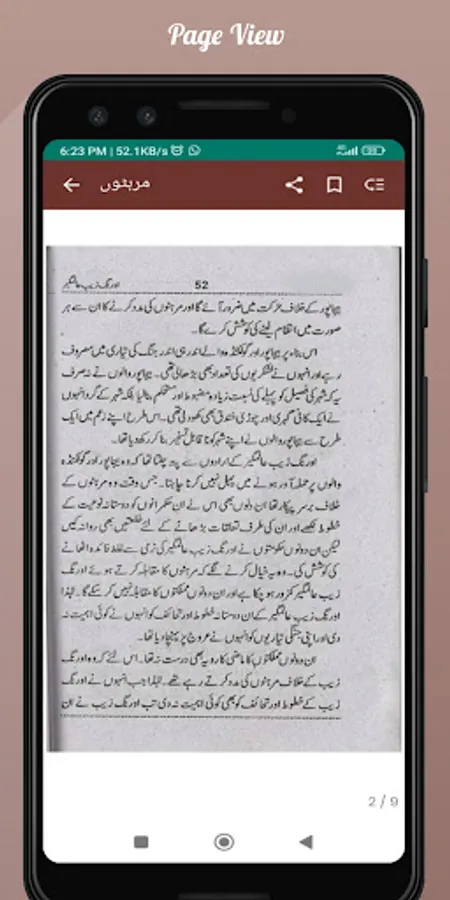 Page View
6:23 PM | 52.1KB/s
مرہٹوں
اورنگ زیب عالمگیر
52
بیجاپور کے خلاف حرکت میں ضرور آئے گا اور مرہٹوں کی مدد کرنے کا ان سے ہر
صورت میں انتقام لینے کی کوشش کرے گا۔
اس بناء پر بیجاپور اور گولکنڈہ والے اندر ہی اندر جنگ کی تیاری میں مصروف
رہے اور انہوں نے لشکریوں کی تعداد بھی بڑھا لی تھی۔ بیجاپوریوں نے نہ صرف
یہ کہ شہر کی فصیل کو پہلے کی نسبت زیادہ مضبوط اور مستحکم بنا لیا بلکہ شہر کے گرد انہوں
نے ایک کافی گہری اور چوڑی خندق بھی کھود لی تھی۔ اس طرح اپنے زعم میں ایک
طرح سے بیجاپور والوں نے اپنے شہر کو ناقابل تسخیر بنا کر رکھ دیا تھا۔
اورنگ زیب عالمگیر کے ارادوں سے پتہ چلتا تھا کہ وہ بیجاپور اور گولکنڈہ
والوں پر حملہ آور ہونے میں پہل نہیں کرنا چاہتا۔ جس وقت وہ مرہٹوں کے
خلاف برسر پیکار تھا ان دنوں بھی اس نے ان حکمرانوں کو دوستانہ نوعیت کے
خطوط لکھے اور ان کی طرف تعلقات بڑھانے کے لئے خلعتیں بھی روانہ کیں
لیکن ان دونوں حکومتوں نے اورنگ زیب عالمگیر کی نرمی سے غلط فائدہ اٹھانے
کی کوشش کی۔ وہ یہ خیال کرنے لگے کہ مرہٹوں کا مقابلہ کرتے ہوئے اورنگ
زیب عالمگیر کمزور ہو چکا ہے اور ان دونوں مملکتوں کا مقابلہ نہیں کر سکے گا۔ لہٰذا
اورنگ زیب عالمگیر کے ان دوستانہ خطوط اور تحائف کو انہوں نے کوئی اہمیت نہ
دی اور اپنی جنگی تیاریوں کو انہوں نے عروج پر پہنچا دیا تھا۔
ان دونوں مملکتوں کا ماضی کا رویہ بھی درست نہ تھا۔ اس لئے کہ وہ اورنگ
زیب کے خلاف مرہٹوں کی مدد کرتے رہے تھے۔ لہٰذا جب انہوں نے اورنگ
زیب کے خطوط اور تحائف کو بھی کوئی اہمیت نہ دی تب اورنگ زیب نے ان
2 / 9